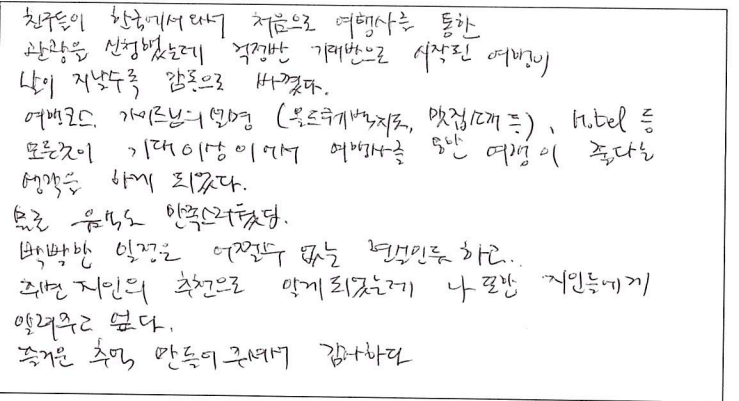 친구들이 한국에서 와서 처음으로 여행사를 통한
관광을 신청했는데 걱정반 기대반으로 시작된 여행이
날이 지날수록 감동으로 바꼈다.
여행코스, 가이드님의 설명 (몰드쿠키, 맛집소개 등), Hotel 등
모든것이 기대 이상이어서 여행사를 통한 여행이 좋다는
생각을 하게 되었다.
물론 음식도 만족스러웠답.
빡빡한 일정은 어쩔수 없는 현실인듯 하고..
주변 지인의 추천으로 알게 되었는데 나 또한 지인들에게
알려주고 싶다.
즐거운 추억 만들어 주셔서 감사하다